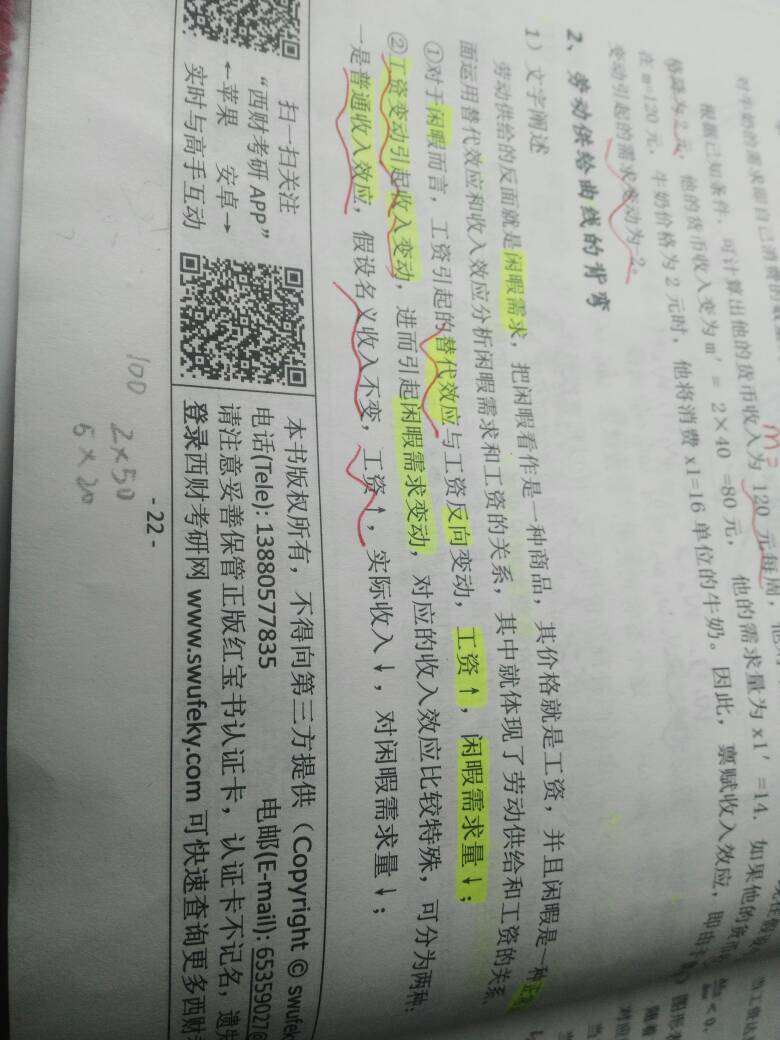 对牛奶的需求
根据已知条件，可计算出他的货币收入为 120 元每周，
他的货币收入变为 m′ = 2×40 =80 元， 他的需求量为 x1′ =14. 如果他的货币
在 m=120 元，牛奶价格为 2 元时，他将消费 x1=16 单位的牛奶。因此，禀赋收入效应，即由于
变动引起的需求变动为-2。
2、劳动供给曲线的背弯
1）文字阐述
劳动供给的反面就是闲暇需求，把闲暇看作是一种商品，其价格就是工资，并且闲暇是一种正
面运用替代效应和收入效应分析闲暇需求和工资的关系，其中就体现了劳动供给和工资的关系
①对于闲暇而言，工资引起的替代效应与工资反向变动，工资↑，闲暇需求量↓；
②工资变动引起收入变动，进而引起闲暇需求变动，对应的收入效应比较特殊，可分为两种：
一是普通收入效应，假设名义收入不变，工资↑，实际收入↓，对闲暇需求量↓；
扫一扫关注
“西财考研 APP”
←苹果 安卓→
实时与高手互动
本书版权所有，不得向第三方提供（Copyright © swufek
电话(Tele): 13880577835 电邮(E-mail): 6535902
请注意妥善保管正版红宝书认证卡，认证卡不记名，遗失
登录西财考研网 www.swufeky.com 可快速查询更多西财
- 22 -
100
2×50
5×20